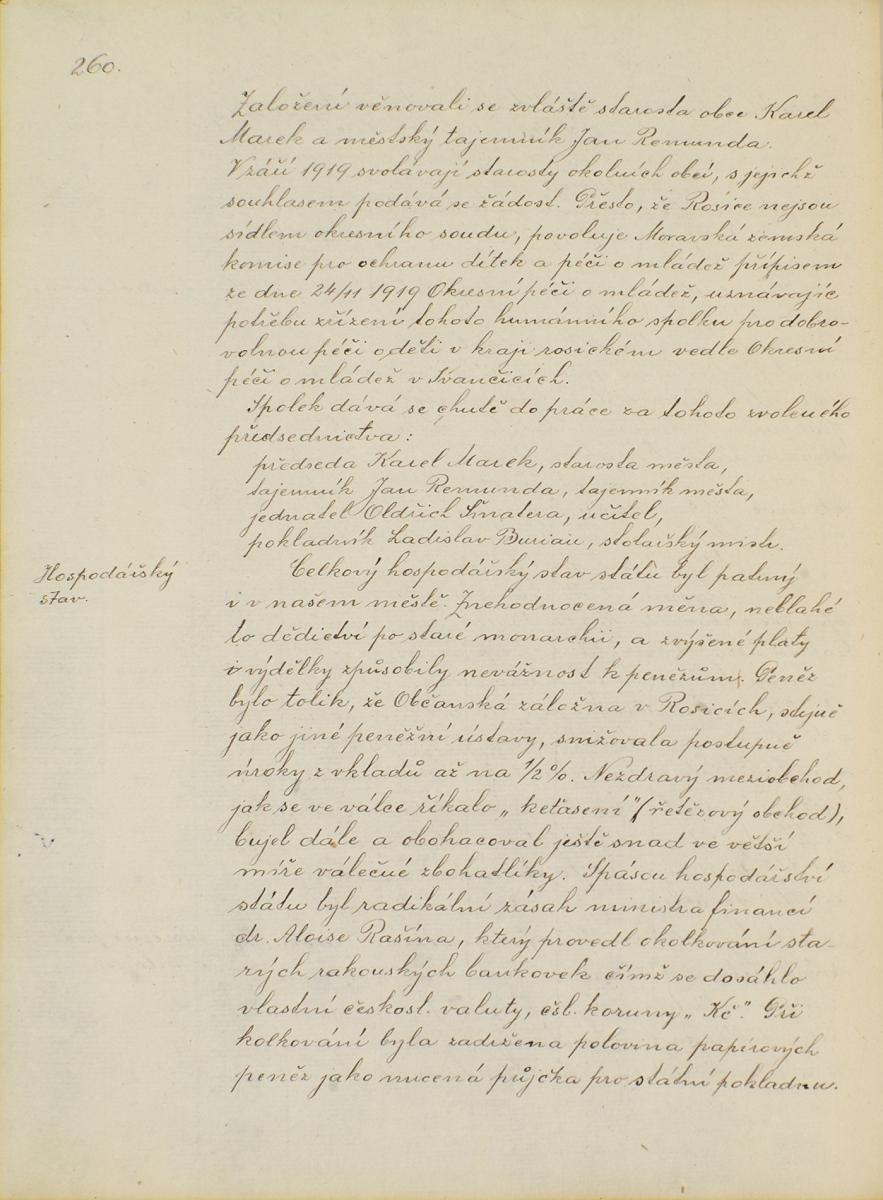 260.
Založení věnovali se zvláště starosta obce Karel
Marek a městský tajemník Jan Remunda.
V září 1919 svolávají starosty okolních obcí, s jejichž
souhlasem podává se žádost. Přesto, že Rosice nejsou
sídlem okresního soudu, povoluje Moravská zemská
komise pro ochranu dítek a péči o mládež přípisem
ze dne 24/11 1919 Okresní péči o mládež, uznávajíc
potřebu zřízení tohoto humánního spolku pro dobro-
volnou péči o děti v kraji rosickém vedle Okresní
péči o mládež v Ivančicích.
Spolek dává se chutě do práce za tohoto zvoleného
předsednictva:
předseda Karel Marek, starosta města,
tajemník Jan Remunda, tajemník města,
jednatel Oldřich Šmatera, učitel,
pokladník Ladislav Burian, stolařský mistr.
Hospodářský
stav.
Celkový hospodářský stav státu byl patrný
i v našem městě. Znehodnocená měna, neblahé
to dědictví po staré monarchii, a zvýšené platy
i výdělky způsobily nevážnost k penězům. Peněz
bylo tolik, že Občanská záložna v Rosicích, stejně
jako jiné peněžní ústavy, snižovala postupně
úroky z vkladů až na 1/2 %. Nezdravý meziobchod,
jak se ve válce říkalo „keťasení" (řetězový obchod),
bujel dále a obohacoval ještě snad ve větší
míře válečné zbohatlíky. Spásou hospodářství
státu byl radikální zásah ministra financí
dr. Aloise Rašína, který provedl okolkování sta-
rých rakouských bankovek čímž se dosáhlo
vlastní českosl. valuty, čsl. koruny „Kč". Při
kolkování byla zadržena polovina papírových
peněz jako nucená půjčka pro státní pokladnu.